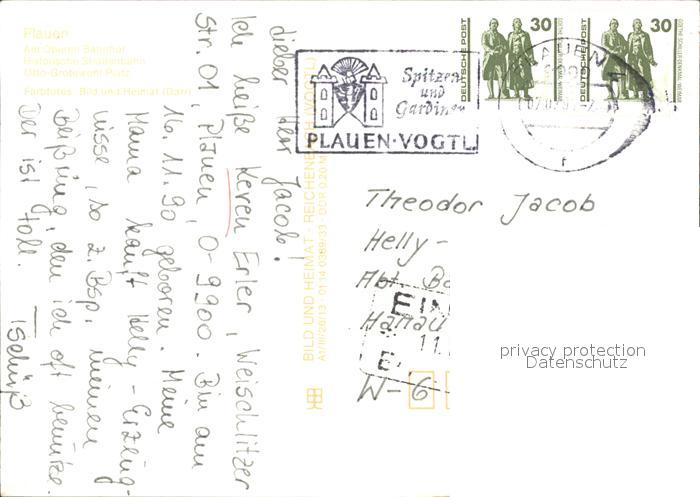 Plauen
Am Oberen Bahnhof
Historische Straßenbahn
Otto-Grotewohl-Platz
Farbfotos: Bild und Heimat (Darr)
lieber Herr Jacob!
Ich heiße Keven Erler, Weischlitzer
Str. 01, Plauen, O-9900. Bin am
16.11.90 geboren. Meine
Mama kauft Helly-Erzeug-
nisse, so z. Bsp. meinen
Beißring, den ich oft benutze.
Der ist toll.
Tschüß
BILD UND HEIMAT · REICHENBACH (VOGTL)
A1/III/26/13 · 01 14 0369/33 · DDR 0,20 M
Spitzen
und
Gardinen
PLAUEN · VOGTL
DEUTSCHE POST
30
DEUTSCHE POST
30
PLAUEN 1
Theodor Jacob
Helly-
Abt.
Hanau
EIN
11.
E
W-6
privacy protection
Datenschutz